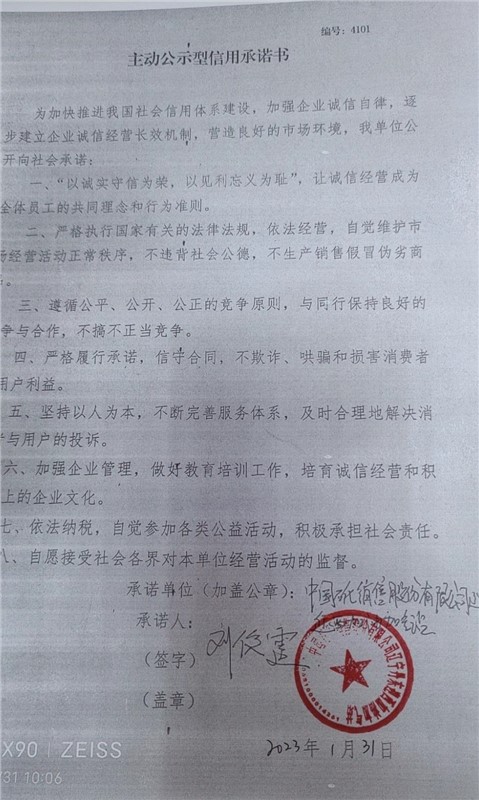 编号：4101
主动公示型信用承诺书
为加快推进我国社会信用体系建设，加强企业诚信自律，逐
步建立企业诚信经营长效机制，营造良好的市场环境，我单位公
开向社会承诺：
一、“以诚实守信为荣，以见利忘义为耻”，让诚信经营成为
全体员工的共同理念和行为准则。
二、严格执行国家有关的法律法规，依法经营，自觉维护市
场经营活动正常秩序，不违背社会公德，不生产销售假冒伪劣商
三、遵循公平、公开、公正的竞争原则，与同行保持良好的
争与合作，不搞不正当竞争。
四、严格履行承诺，信守合同，不欺诈、哄骗和损害消费者
用户利益。
五、坚持以人为本，不断完善服务体系，及时合理地解决消
者与用户的投诉。
六、加强企业管理，做好教育培训工作，培育诚信经营和积
上的企业文化。
七、依法纳税，自觉参加各类公益活动，积极承担社会责任。
八、自愿接受社会各界对本单位经营活动的监督。
承诺单位（加盖公章）：中国石化销售股份有限公司辽
承诺人：
（签字）刘俊霆
（盖章）
2023年1月31日
X90 | ZEISS
/31 10:06